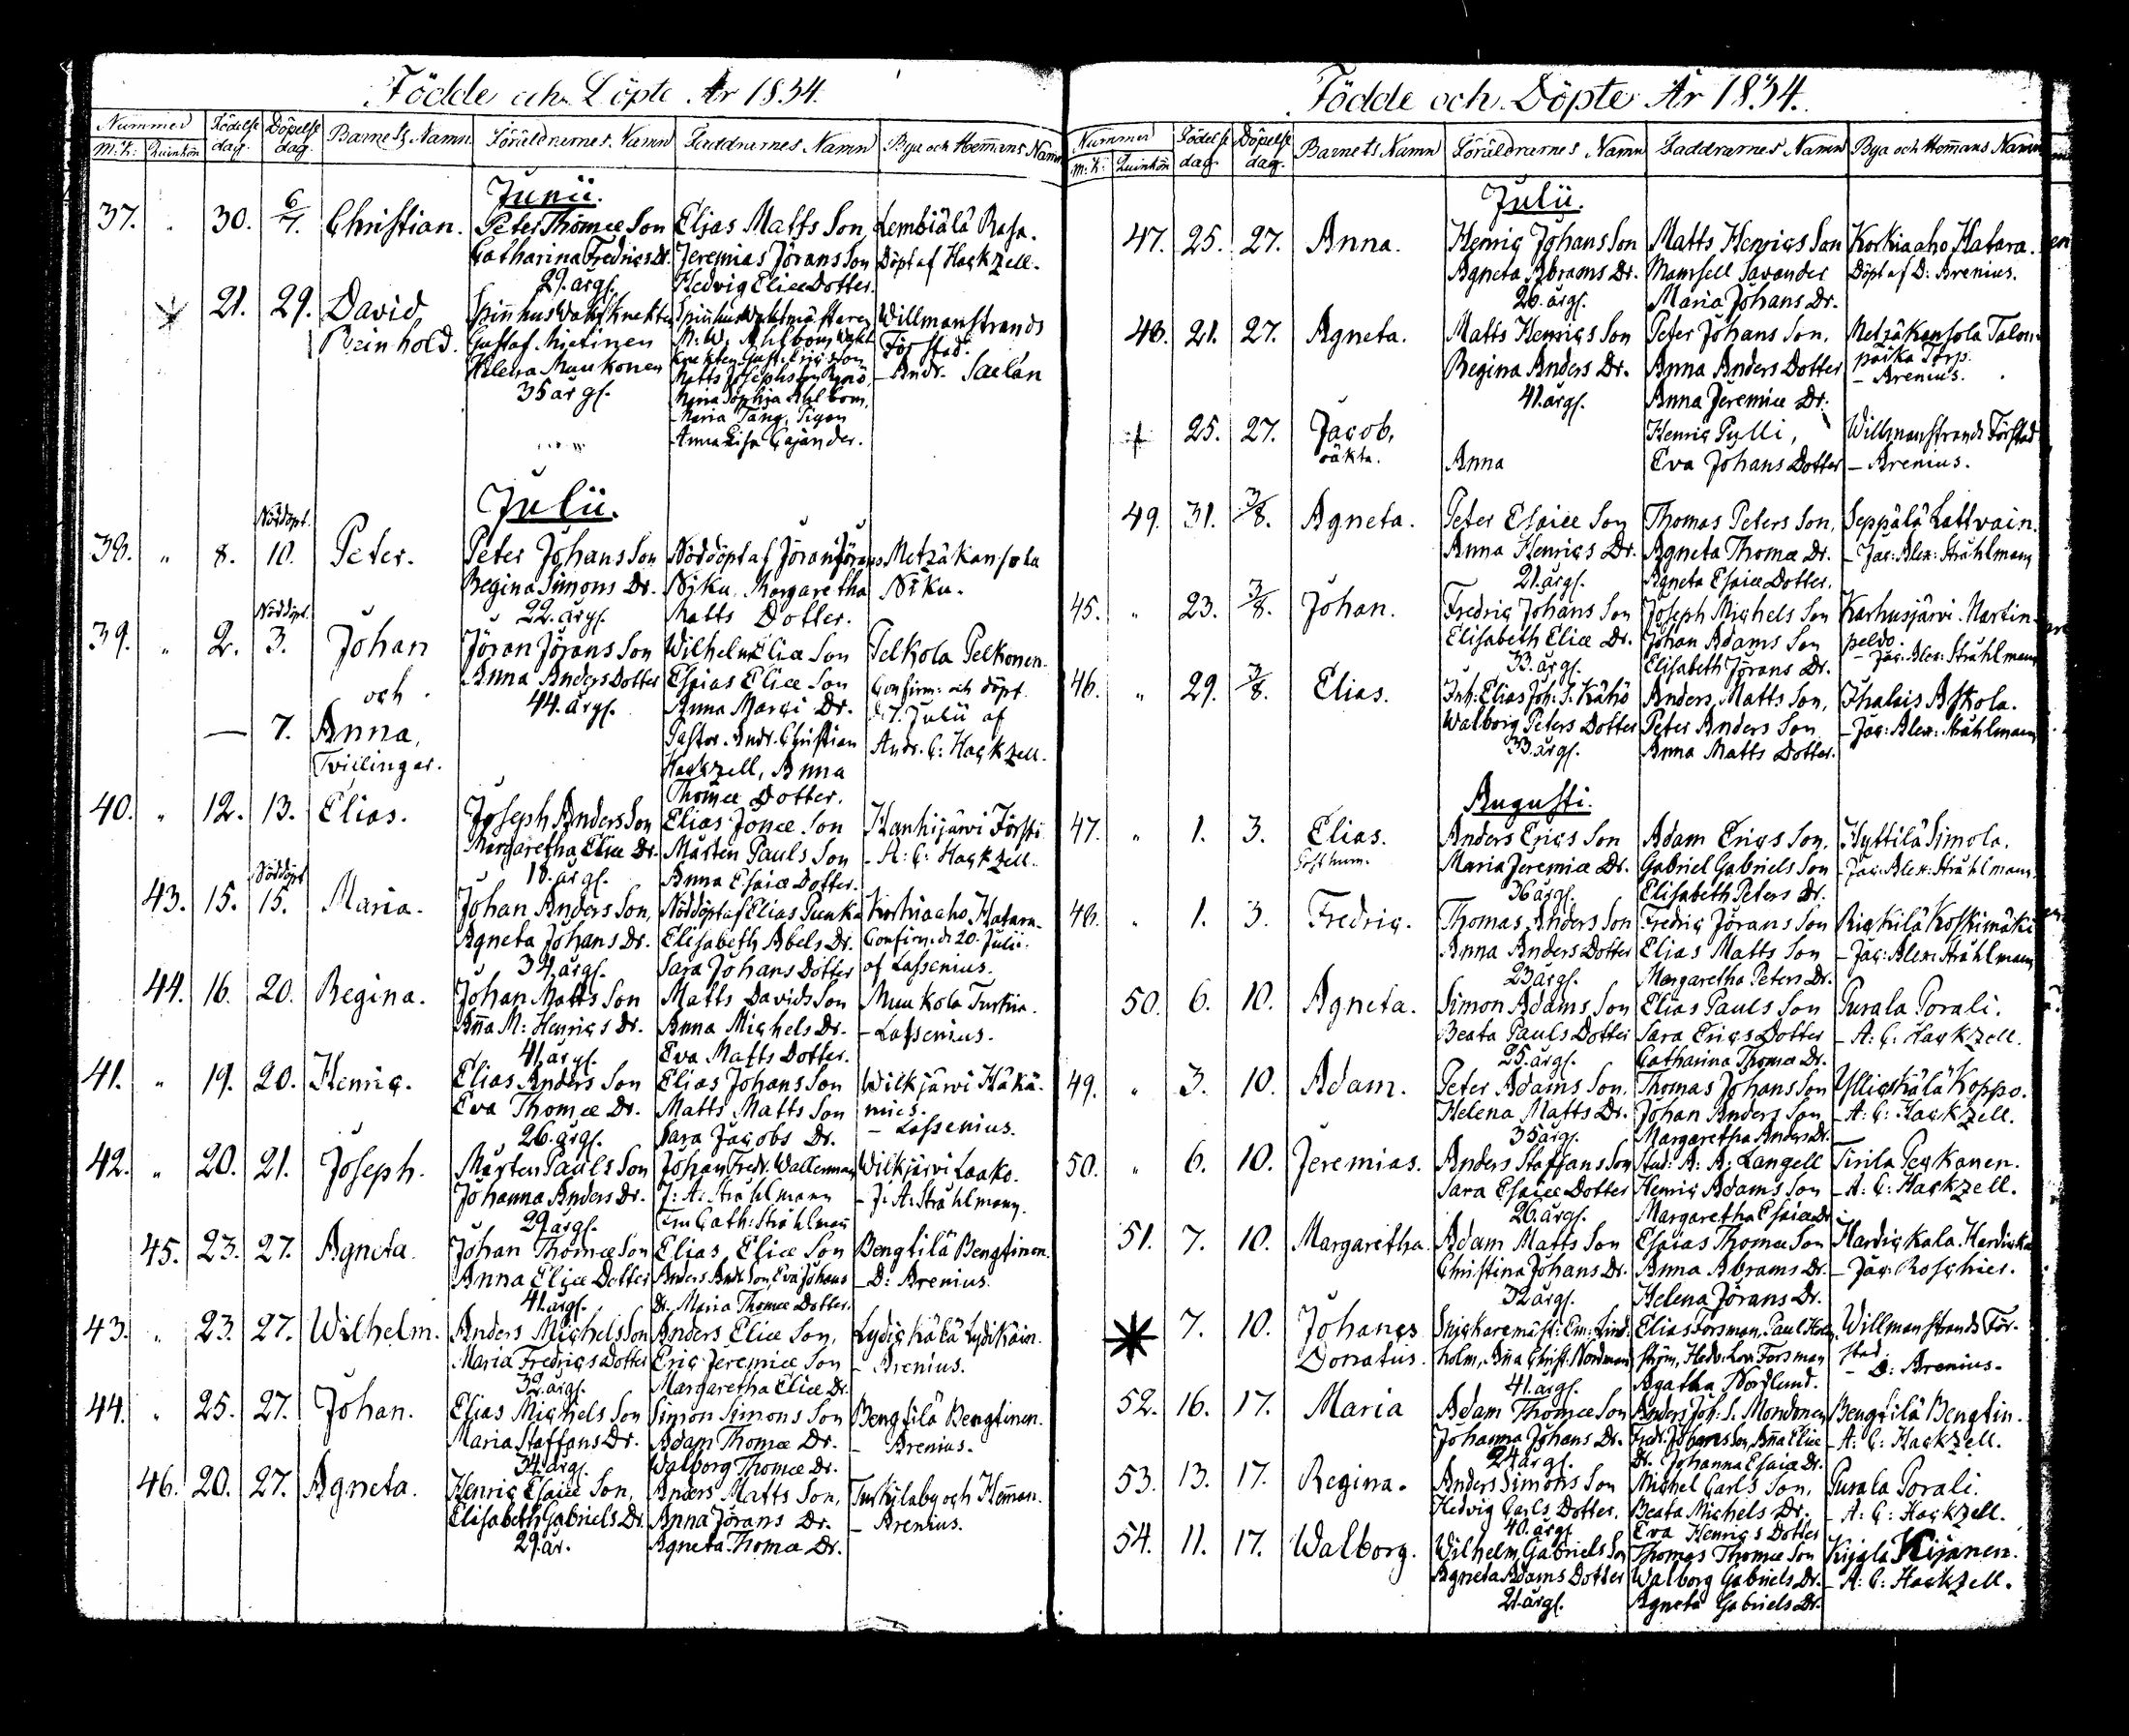 Födde och Döpte År 1834.
Nummer Födelse dag. Döpelse dag. Barnets Namn Föräldrarnes Namn Faddrarnes Namn Bya och Hem̄ans Namn
M:K: Quinkön
Junii.
37. " 30. 6/7. Christian. Peter Thomæ Son Elias Matts Son, Lembiälä Rasa.
Catharina Fredrics Dr. Jeremias Jörans Son Döpt af Hackzell.
29. årgs. Hedvig Eliæ Dotter.
21. 29. David Spin̄hus Vaktknekten Spin̄husvaktmästaren Willmanstrands
Reinhold. Gustaf Mietinen M: W: Ahlbom, Vakt Förstad.
Helena Maukonen knekten Gust: Ericsson – Andr. Saelan
35 årgs. Matts Josephs Son
Maria Sophia Ahlbom,
Maria Tång, Pigan
Anna Lisa Cajander.
Julii.
Nöddöpt.
38. " 8. 10. Peter. Peter Johans Son Nöddöpt af Jöran Jörans Metzäkansola
Regina Simons Dr. Niku. Margaretha Niku.
22. årgs. Matts Dotter.
Nöddöpt.
39. " 2. 3. Johan Jöran Jörans Son Wilhelm Eliæ Son Pelkola Pelkonen.
och Anna Anders Dotter Esaias Eliæ Son Confirm: och döpt
44. årgs. Anna Marci Dr. d. 7. Julii af
— 7. Anna, Pastor. Andr. Christian Andr. C: Hackzell.
Tvillingar. Hackzell, Anna
Thomæ Dotter.
40. " 12. 13. Elias. Joseph Anders Son Elias Jonæ Son Hanhijärvi Försti
Margaretha Eliæ Dr. Mårten Pauls Son – A: C: Hackzell.
18. årgs. Anna Esaiæ Dotter.
Nöddöpt
43. 15. 15. Maria. Johan Anders Son, Nöddöpt af Elias Punka Korkiaaho Hatara.
Agneta Johans Dr. Elisabeth Abels Dr. Confirm. d. 20. Julii.
34. årgs. Sara Johans Dotter af Lassenius.
44. 16. 20. Regina. Johan Matts Son Matts Davids Son Muukola Turkia.
An̄a M: Henrics Dr. Anna Michels Dr. – Lassenius.
41. årgs. Eva Matts Dotter.
41. " 19. 20. Henric. Elias Anders Son Elias Johans Son Wilkjärvi Häkä-
Eva Thomæ Dr. Matts Matts Son mies.
26. årgs. Sara Jacobs Dr. – Lassenius.
42. " 20. 21. Joseph. Mårten Pauls Son Johan Fredr. Walleman Wilkjärvi Laako.
Johanna Anders Dr. J: A: Stråhlmann – J: A: Stråhlmann.
29. årgs. Fru Cath: Stråhlman̄
45. 23. 27. Agneta. Johan Thomæ Son Elias Eliæ Son Bengtilä Bengtinen.
Anna Eliæ Dotter Anders Andr. Son, Eva Johans – D: Arenius.
41. årgs. Dr. Maria Thomæ Dotter.
43. " 23. 27. Wilhelm. Anders Michels Son Anders Eliæ Son, Lydickälä Lydikäin.
Maria Fredrics Dotter Eric Jeremiæ Son – Arenius.
32. årgs. Margaretha Eliæ Dr.
44. " 25. 27. Johan. Elias Michels Son Simon Simons Son Bengtilä Bengtinen.
Maria Staffans Dr. Adam Thomæ Dr. – Arenius.
34. årgs. Walborg Thomæ Dr.
46. 20. 27. Agneta. Henric Esaiæ Son, Anders Matts Son, Turkilaby och Hem̄an.
Elisabeth Gabriels Dr. Anna Jörans Dr. – Arenius.
29. år. Agneta Thomæ Dr.
Födde och Döpte År 1834.
Nummer Födelse dag. Döpelse dag. Barnets Namn Föräldrarnes Namn Faddrarnes Namn Bya och Hem̄ans Namn
M:K: Quinkön
Julii.
47. 25. 27. Anna. Henric Johans Son Matts Henrics Son Korkiaaho Hatara.
Agneta Abrams Dr. Mamsell Savander Döpt af D: Arenius.
26. årgs. Maria Johans Dr.
48. 21. 27. Agneta. Matts Henrics Son Peter Johans Son, Metzäkansola Talon-
Regina Anders Dr. Anna Anders Dotter poika Torp.
41. årgs. Anna Jeremiæ Dr. – Arenius.
25. 27. Jacob, Henric Pylli, Willmanstrands Förstad
oäkta. Anna Eva Johans Dotter – Arenius.
49. 31. 3/8. Agneta. Peter Esaiæ Son Thomas Peters Son, Seppälä Lattvain.
Anna Henrics Dr. Agneta Thomæ Dr. – Jac: Alex: Stråhlmann
21. årgs. Agneta Esaiæ Dotter.
45. " 23. 3/8. Johan. Fredric Johans Son Joseph Michels Son Karhusjärvi Martin-
Elisabeth Eliæ Dr. Johan Adams Son peldo.
33. årgs. Elisabeth Jörans Dr. – Jac: Alex: Stråhlmann
46. " 29. 3/8. Elias. Inh: Elias Joh: S. Kähö Anders Matts Son, Ihalais Askola.
Walborg Peters Dotter Peter Anders Son – Jac: Alex: Stråhlmann
33. årgs. Anna Matts Dotter.
Augusti.
47. " 1. 3. Elias. Anders Erics Son Adam Erics Son, Hyttilä Simola.
Posthum. Maria Jeremiæ Dr. Gabriel Gabriels Son – Jac: Alex: Stråhlmann
36 årgs. Elisabeth Peters Dr.
48. " 1. 3. Fredric. Thomas Anders Son Fredric Jörans Son Rickilä Koskimäki
Anna Anders Dotter Elias Matts Son – Jac: Alex: Stråhlmann
23 årgs. Margaretha Peters Dr.
50. 6. 10. Agneta. Simon Adams Son Elias Pauls Son Purala Porali.
Beata Pauls Dotter Sara Erics Dotter – A: C: Hackzell.
25. årgs. Catharina Thomæ Dr.
49. " 3. 10. Adam. Peter Adams Son, Thomas Johans Son Yllickälä Koppo.
Helena Matts Dr. Johan Anders Son – A: C: Hackzell.
35 årgs. Margaretha Anders Dr.
50. " 6. 10. Jeremias. Anders Staffans Son Stud: A: A: Langell Tirila Peckanen.
Sara Esaiæ Dotter Henric Adams Son – A: C: Hackzell.
26. årgs. Margaretha Esaiæ Dr.
51. 7. 10. Margaretha. Adam Matts Son Esaias Thomæ Son Hardickala Hardicka
Christina Johans Dr. Anna Abrams Dr. – Jac: Roschier.
32 årgs. Helena Jörans Dr.
7. 10. Johanes Snickaremäst: Em: Lind- Elias Forsman, Paul Willmanstrands För-
Donatus. holm, An̄a Christ. Nordman Hedv: Lov: Forsman stad
41. årgs. Agatha Nordlund. – D: Arenius.
52. 16. 17. Maria Adam Thomæ Son Anders Joh: S. Mondonen Bengtilä Bengtin.
Johanna Johans Dr. Fredr: Johans Son, An̄a Eliæ – A: C: Hackzell.
24 årgs. Dr. Johanna Esaiæ Dr.
53. 13. 17. Regina. Anders Simons Son Michel Carls Son, Purala Porali.
Hedvig Carls Dotter, Beata Michels Dr. – A: C: Hackzell.
40. årgs. Eva Henrics Dotter
54. 11. 17. Walborg. Wilhelm Gabriels Son Thomas Thomæ Son Kijala Kijanen.
Agneta Adams Dotter Walborg Gabriels Dr. – A: C: Hackzell.
21. årgs. Agneta Gabriels Dr.